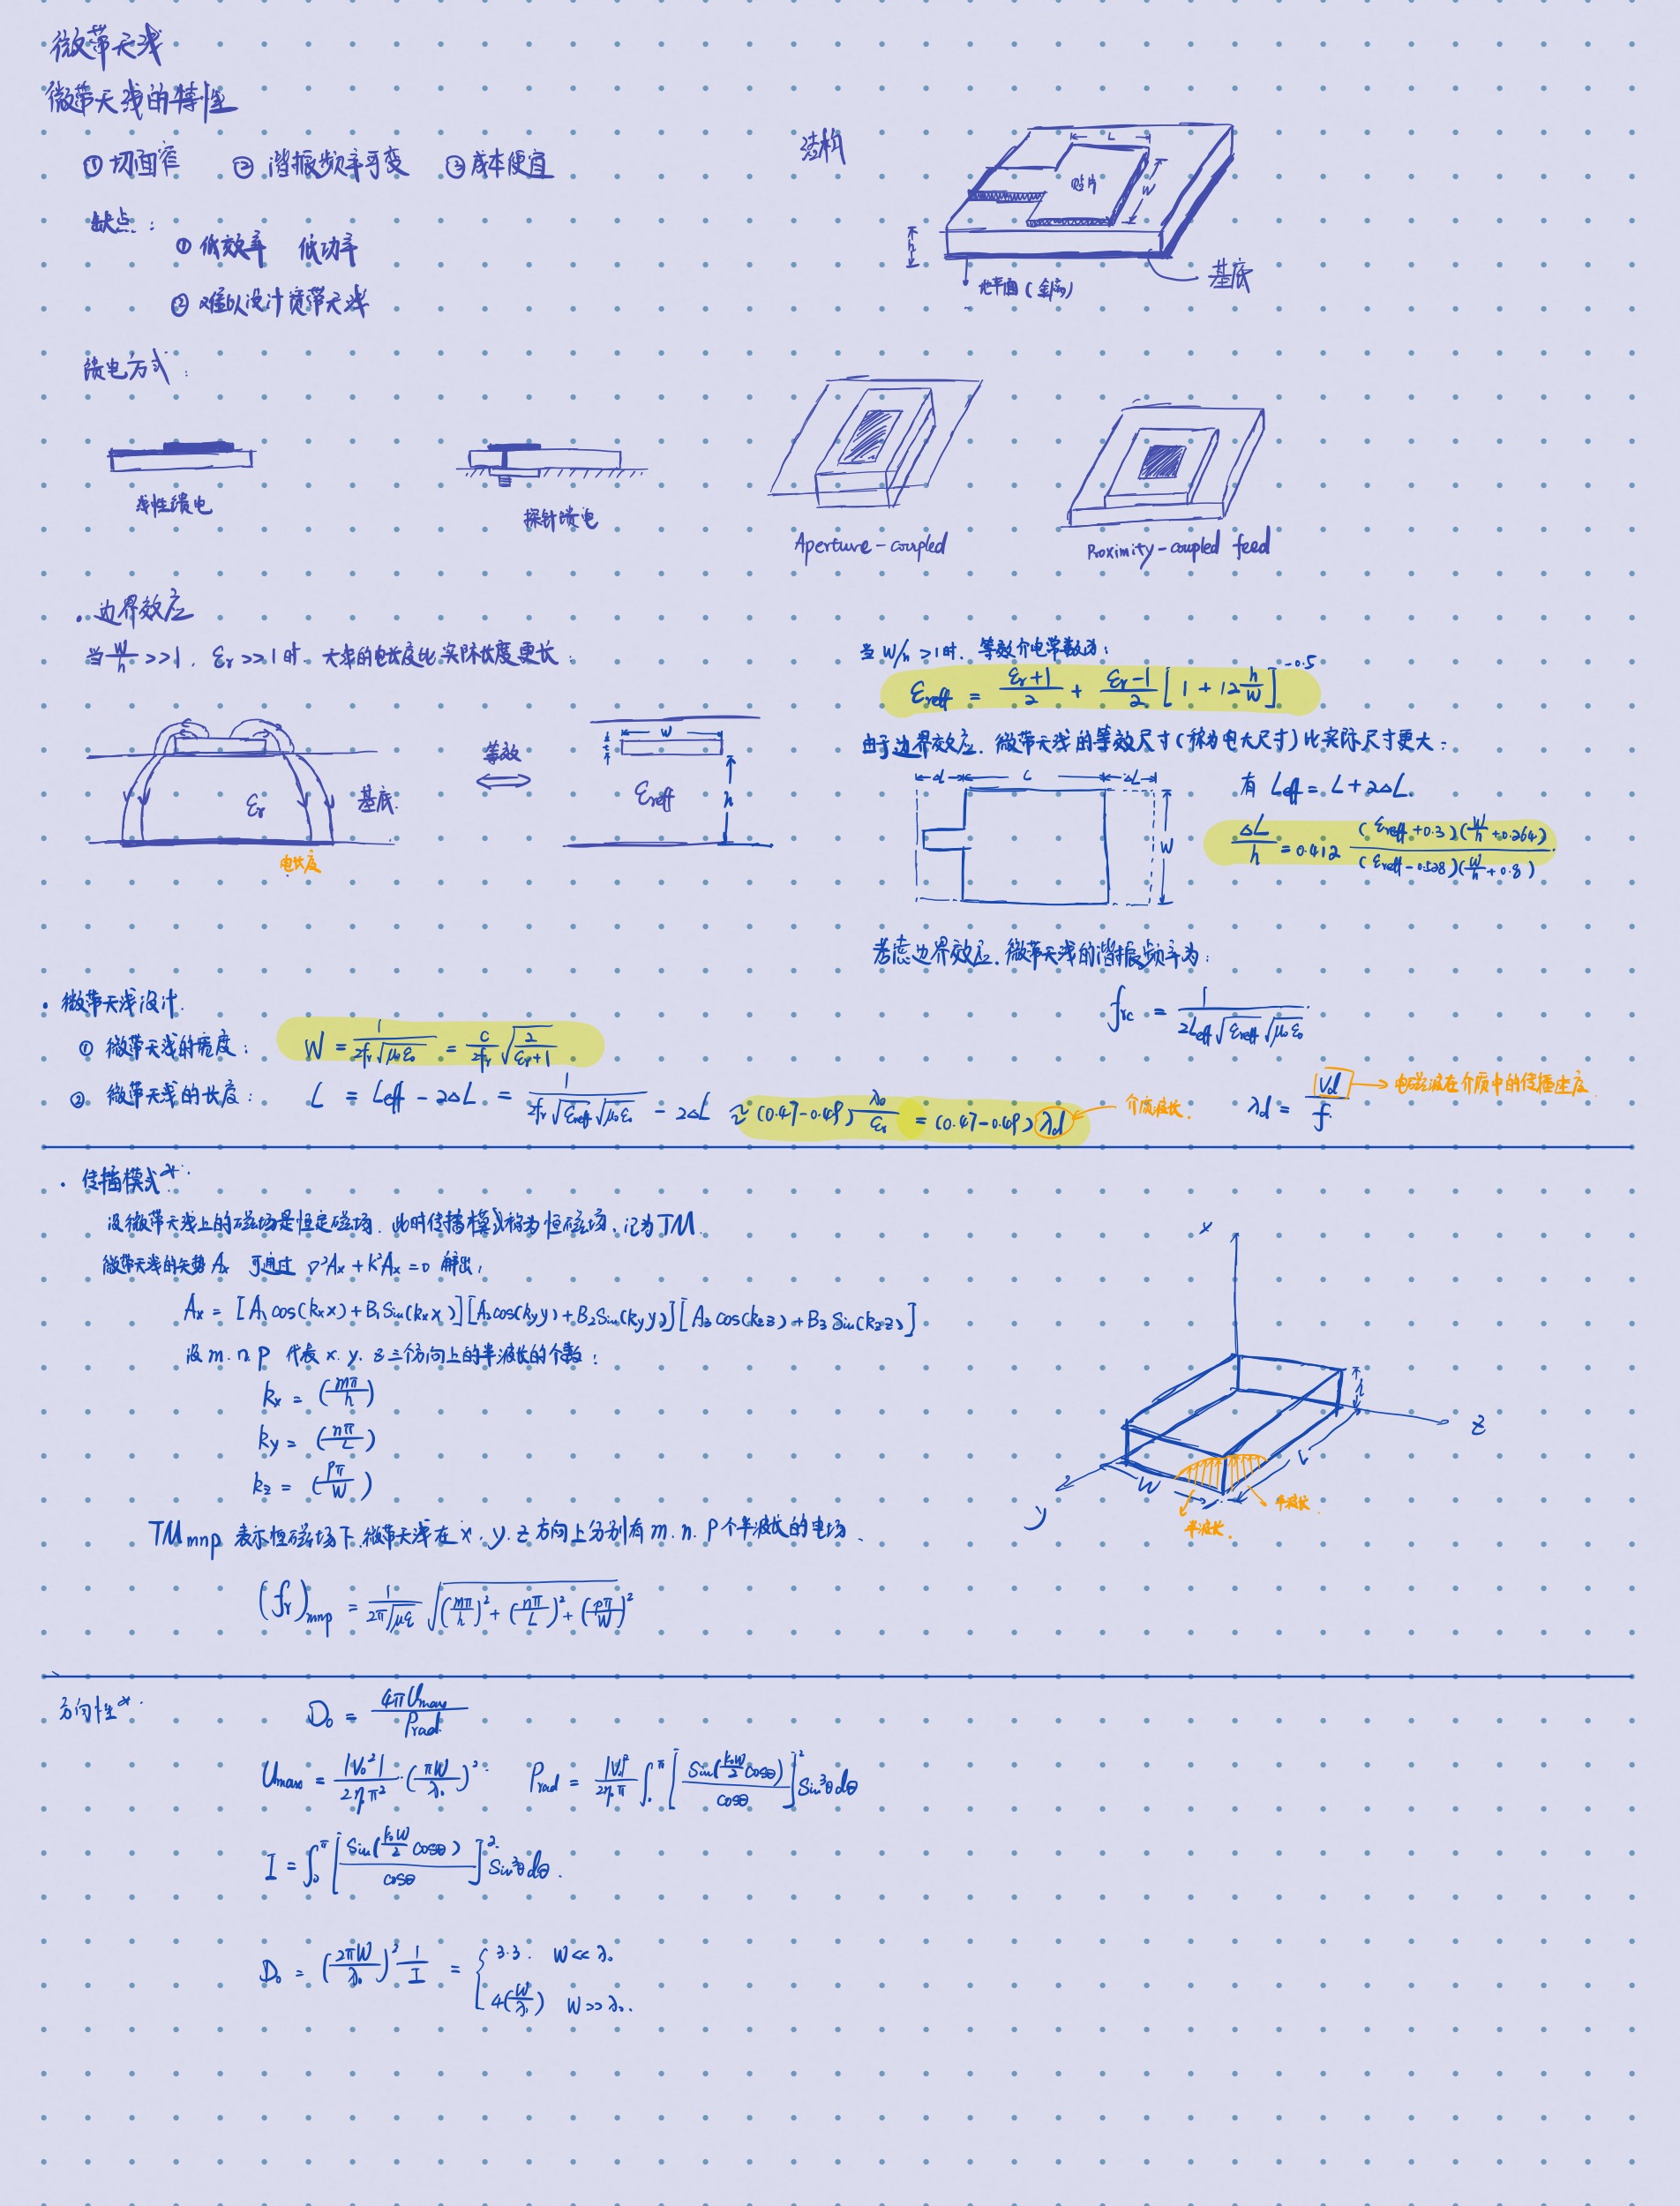 微带天线
微带天线的特性
① 切面窄 ② 谐振频率可变 ③ 成本便宜
缺点:
① 低效率 低功率
② 难以设计宽带天线
结构
L
贴片
W
h
地平面(金属)
基底
馈电方式:
线性馈电
探针馈电
Aperture-coupled
Proximity-coupled feed
· 边界效应
当 W/h >>1, εr >>1 时, 天线的电长度比实际长度更长:
εr
基底
电长度
等效
W
t
εreff
h
当 W/h >1时, 等效介电常数为:
εreff = (εr+1)/2 + (εr-1)/2 [1 + 12 h/W]^-0.5
由于边界效应, 微带天线的等效尺寸(称为电大尺寸)比实际尺寸更大:
ΔL L ΔL
W
有 Leff = L + 2ΔL
ΔL/h = 0.412 (εreff+0.3)(W/h+0.264)/(εreff-0.528)(W/h+0.8)
考虑边界效应, 微带天线的谐振频率为:
frc = 1/(2Leff√εreff √μ0ε0)
· 微带天线设计
① 微带天线的宽度: W = 1/(2fr√μ0ε0) = c/2fr √(2/(εr+1))
② 微带天线的长度: L = Leff - 2ΔL = 1/(2fr√εreff √μ0ε0) - 2ΔL ≈ (0.47-0.49) λ0/εr = (0.47-0.49) λd
介质波长.
λd = Vd/f
电磁波在介质中的传播速度
· 传播模式*
设微带天线上的磁场是恒定磁场, 此时传播模式称为恒磁场, 记为TM.
微带天线的矢势 Ax 可通过 ∇²Ax + k²Ax = 0 解出,
Ax = [A1 cos(kx x) + B1 Sin(kx x)][A2 cos(ky y) + B2 Sin(ky y)][A3 cos(kz z) + B3 Sin(kz z)]
设 m. n. p 代表 x. y. z 三个方向上的半波长的个数:
kx = (mπ/h)
ky = (nπ/L)
kz = (pπ/W)
x
z
y
h
L
W
半波长
半波长.
TMmnp 表示恒磁场下, 微带天线在 x. y. z 方向上分别有 m. n. p 个半波长的电场.
(fr)mnp = 1/(2π√με) √((mπ/h)² + (nπ/L)² + (pπ/W)²
方向性*
D0 = 4πUmax/Prad
Umax = |V0²|/(2η0π²) (πW/λ0)² Prad = |V0|²/(2η0π) ∫0^π [Sin(k0W/2 cosθ)/cosθ]² Sin³θdθ
I = ∫0^π [Sin(k0W/2 cosθ)/cosθ]² Sin³θdθ.
D0 = (2πW/λ0)² 1/I = { 3.3. W<<λ0
4(W/λ0) W>>λ0.